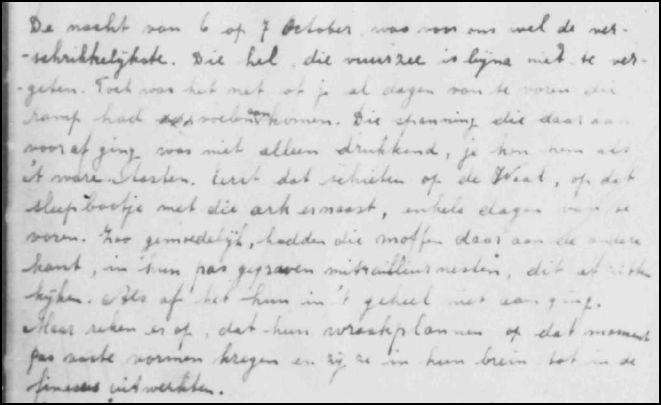 De nacht van 6 op 7 October, was voor ons wel de ver-
-schrikkelijkste. Die hel, die vuurzee is bijna niet te ver-
-geten. Toch was het net of je al dagen van te voren die
ramp had voelen aankomen. Die spanning die daar aan
vooraf ging was niet alleen drukkend, je kon hem als
't ware tasten. Eerst dat schieten op de Waal, op dat
sleepbootje met die ark ernaast, enkele dagen van te
voren. Zoo gemoedelijk, hadden die moffen daar aan de andere
kant, in hun pas gegraven mitrailleurnesten, dit at zitten
kijken. Als of het hun in 't geheel niet aanging.
Maar reken er op, dat hun wraakplannen op dat moment
pas vaste vormen kregen en zij ze in hun brein tot in de
finesses uitwerkten.